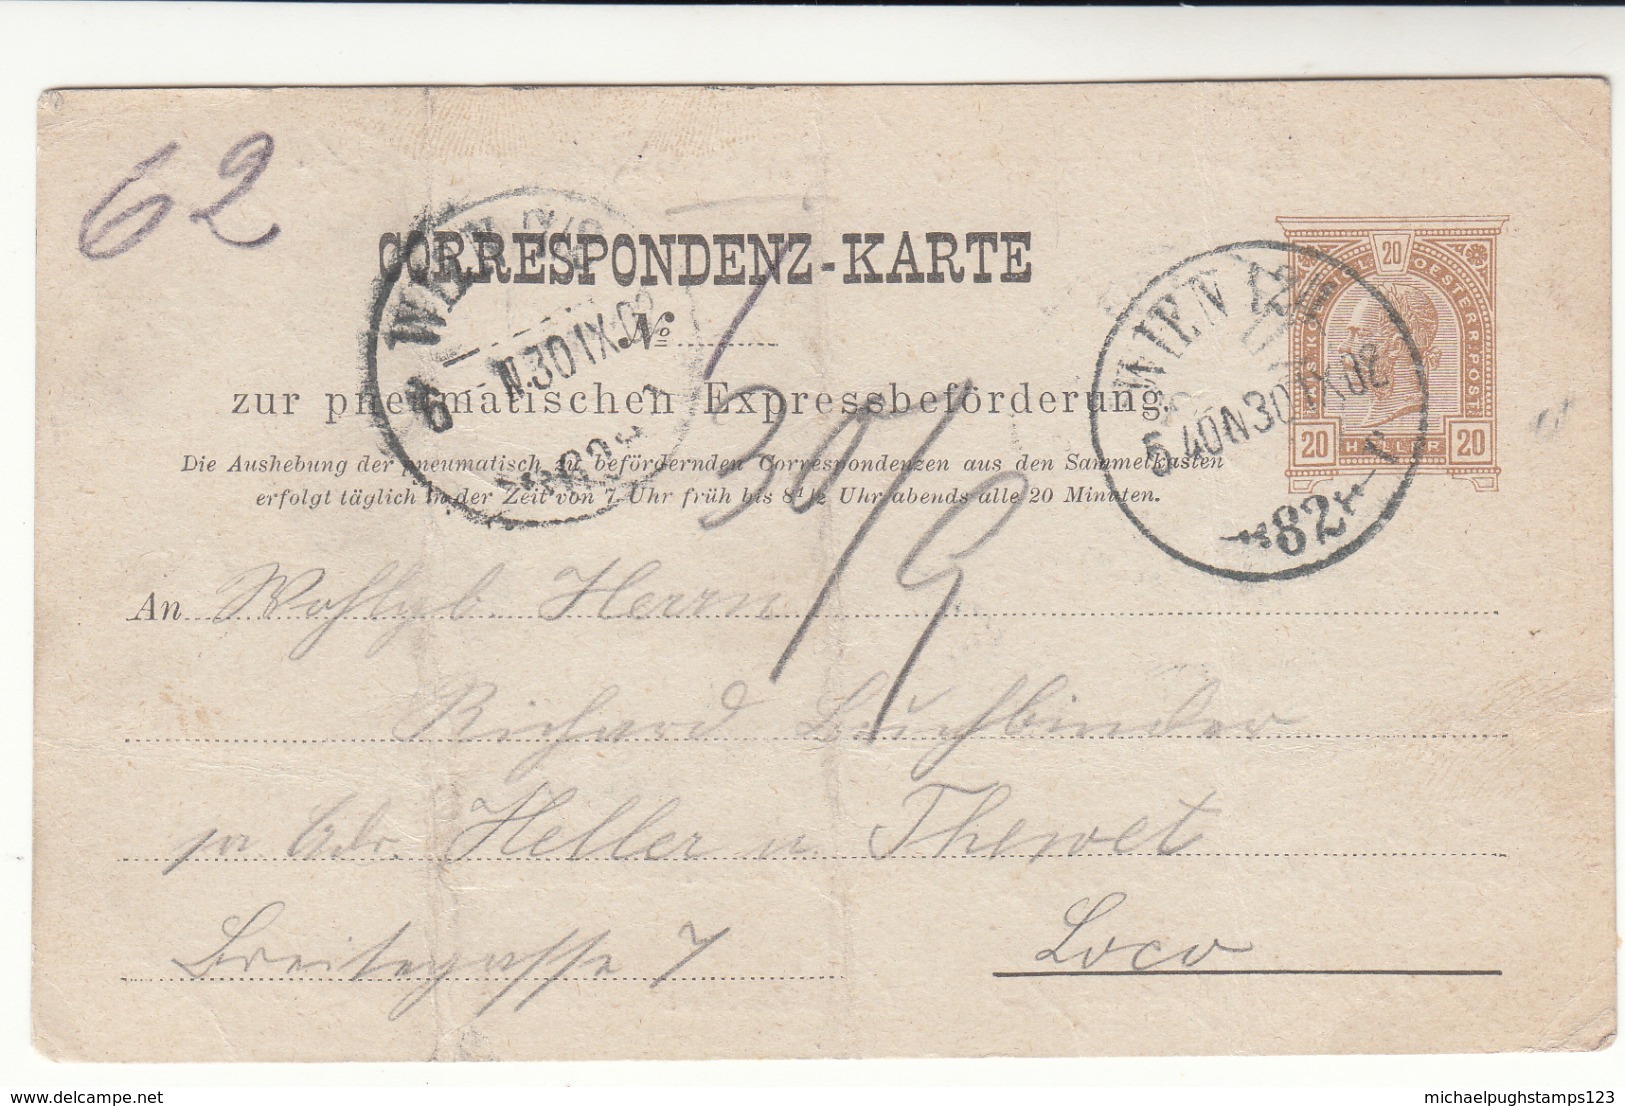 62
CORRESPONDENZ-KARTE
No
zur pneumatischen Expressbeförderung.
Die Aushebung der pneumatisch zu befördernden Correspondenzen aus den Sammelkästen
erfolgt täglich in der Zeit von 7 Uhr früh bis 8½ Uhr abends alle 20 Minuten.
WIEN
6 N.30 IX.02
WIEN
5 40N 30 IX 02
*82*
20
OESTERR.POST.
20 HELLER 20
30/9
An Wohlgb. Herrn
Richard Buchbinder
pr Adr. Heller u
Breitegasse 7
Loco
delcampe.net
michaelpughstamps123